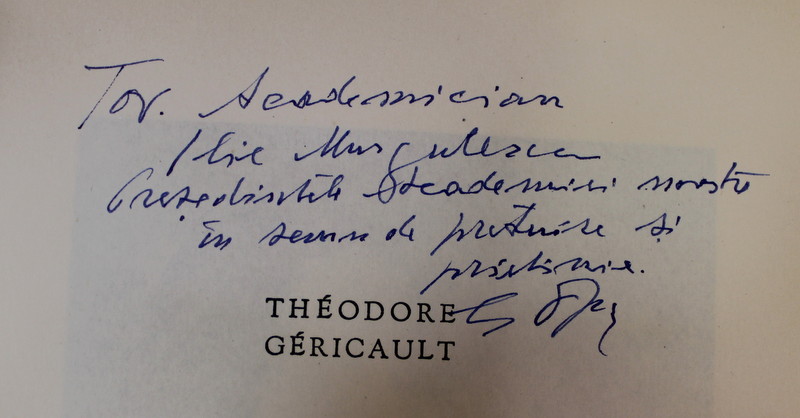 Tov. Academician
Ilie Murgulescu
Președintele Academiei noastre
în semn de prețuire și
prietenie.
THÉODORE
GÉRICAULT